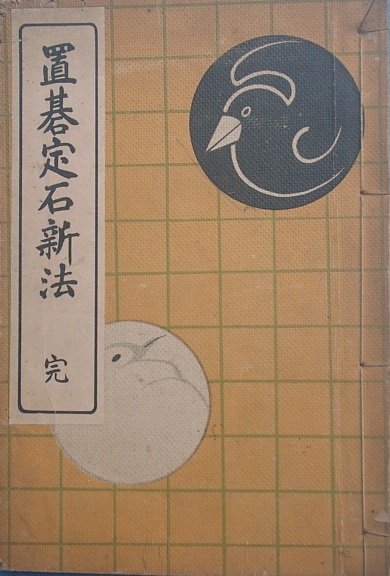 置碁定石新法 完